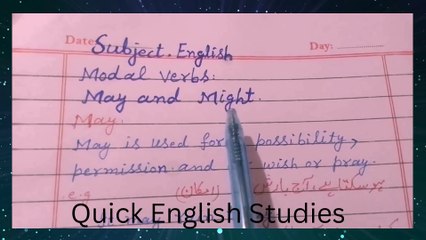 Date: Day:
Subject. English
Modal verbs:
May and Might.
May.
May is used for possibility,
permission and wish or pray.
e.g (امکان) ہو سکتا ہے، آج بارش
Quick English Studies